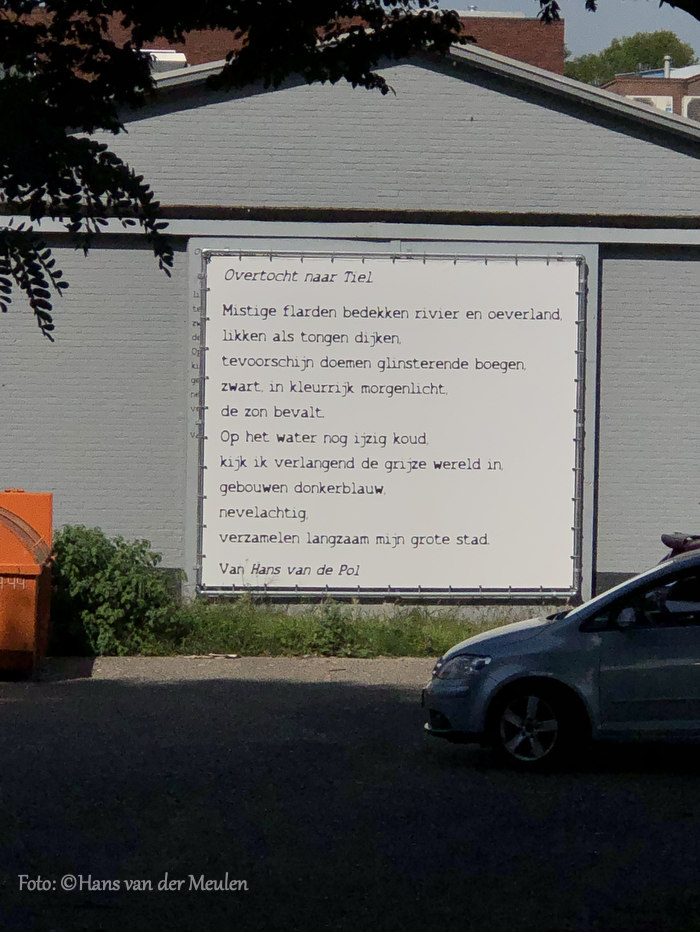 Overtocht naar Tiel
Mistige flarden bedekken rivier en oeverland,
likken als tongen dijken,
tevoorschijn doemen glinsterende boegen,
zwart, in kleurrijk morgenlicht,
de zon bevalt.
Op het water nog ijzig koud,
kijk ik verlangend de grijze wereld in,
gebouwen donkerblauw,
nevelachtig,
verzamelen langzaam mijn grote stad.
Van Hans van de Pol
Foto: ©Hans van der Meulen